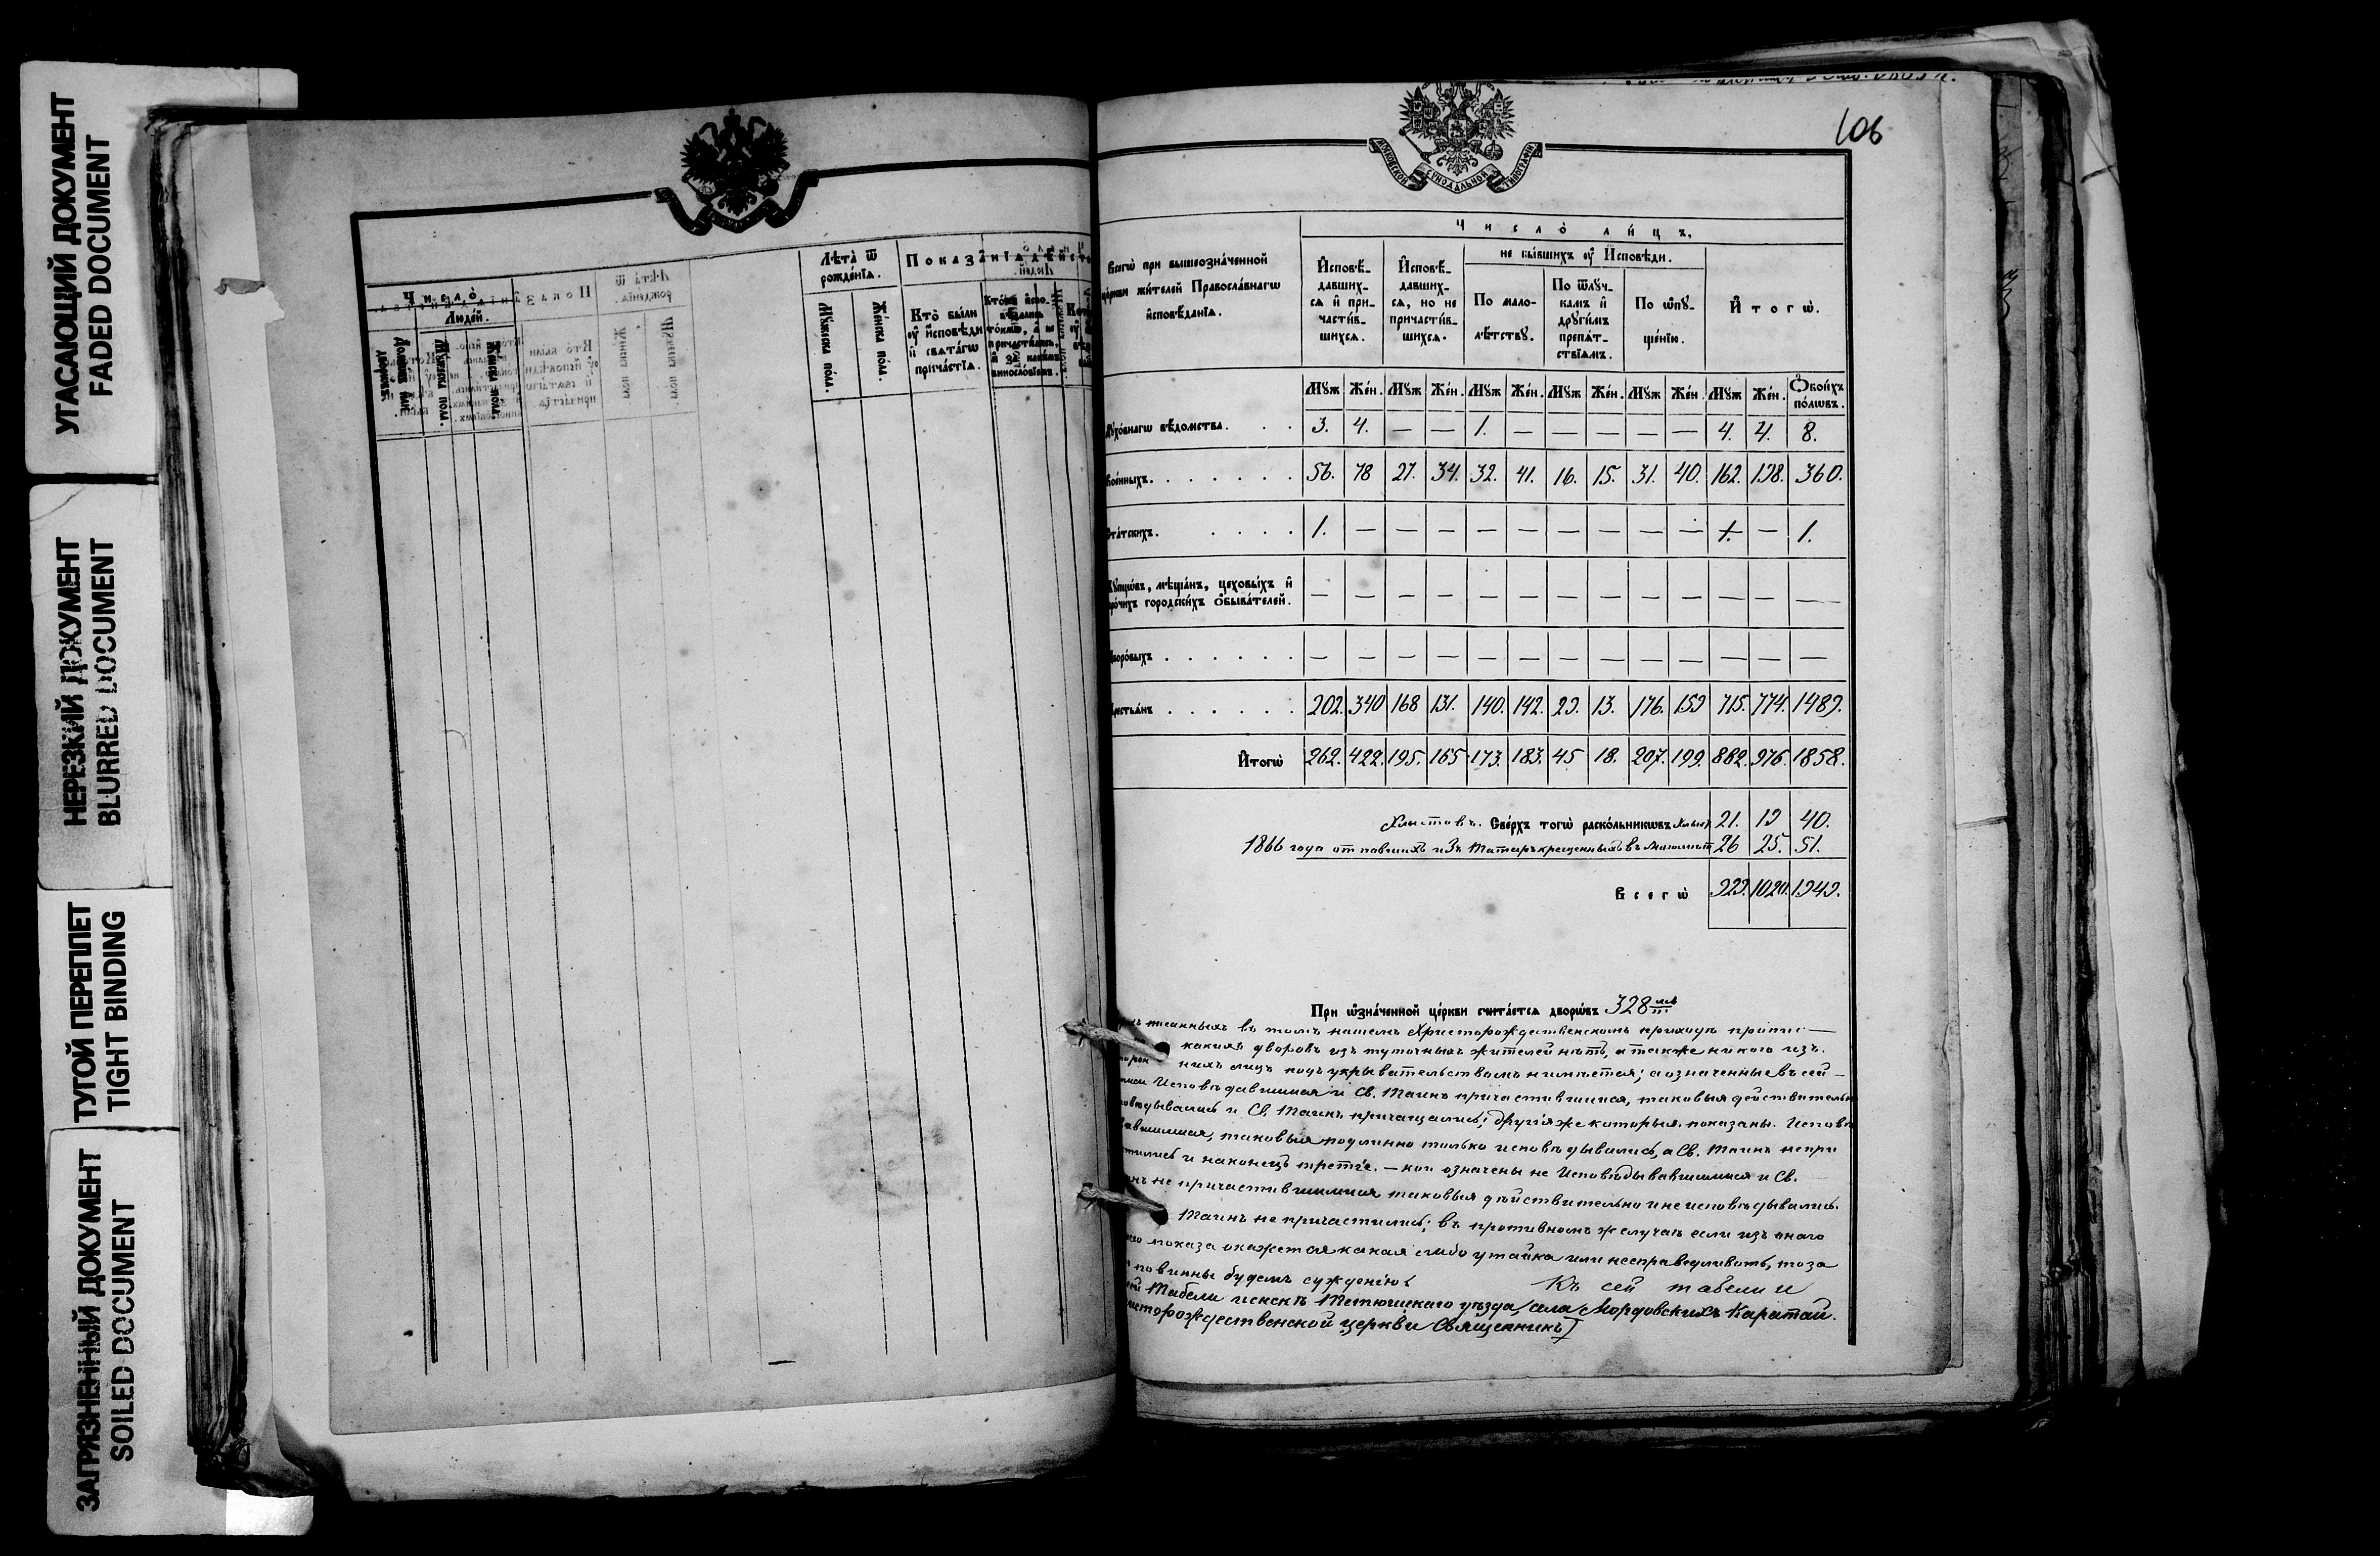 УГАСАЮЩИЙ ДОКУМЕНТ
FADED DOCUMENT
НЕРЕЗКИЙ ДОКУМЕНТ
BLURRED DOCUMENT
ТУГОЙ ПЕРЕПЛЕТ
TIGHT BINDING
ЗАГРЯЗНЕННЫЙ ДОКУМЕНТ
SOILED DOCUMENT
Число̀
Людей.
Мꙋжеска пола.
Лѣта̀ ѿ рожденїѧ.
Мꙋжеска пола.
Женска пола.
Показанїѧ
Кто̀ были оу҆ исповѣди и҆ свѧтагѡ причастїѧ.
106
МОСКОВСКОЙ СѴНОДАЛЬНОЙ ТИПОГРАФІИ
Число̀ лицъ.
Всегѡ̀ при вышеозначенной церкви жителей Православнагѡ и҆сповѣданїѧ.
И҆сповѣдавшихсѧ и҆ причастившихсѧ.
И҆сповѣдавшихсѧ, но не причастившихсѧ.
не бывшихъ оу҆ И҆сповѣди.
По малолѣтствꙋ.
По ѿлꙋчкамъ и҆ дрꙋгимъ препѧтствїѧмъ.
По ѡ҆пꙋщенїю.
И҆тогѡ̀.
Мꙋж Жен. Мꙋж Жен. Мꙋж Жен. Мꙋж Жен. Мꙋж Жен. Мꙋж Жен. Ѻ҆боихъ полѡвъ.
Дꙋховнагѡ вѣдомства. 3. 4. — — 1. — — — — — 4. 4. 8.
Военныхъ. 56. 78 27. 34. 32. 41. 16. 15. 31. 40. 162. 198. 360.
Статскихъ. 1. — — — — — — — — — 1. — 1.
Кꙋпцѡвъ, мѣщанъ, цеховыхъ и҆ прочихъ городскихъ ѻ҆бывателей. — — — — — — — — — — — — —
Дворовыхъ — — — — — — — — — — — — —
Крестьѧнъ 202. 340 168 131. 140. 142. 29. 13. 176. 159 715. 774. 1489.
И҆тогѡ̀ 262. 422. 195. 165 173. 183. 45 18. 207. 199. 882. 976. 1858.
Хлыстовъ. Сверхъ тогѡ̀ раскольникѡвъ 21. 19 40.
1866 года отпавшихъ изъ Татаръ крещенныхъ въ 26 25. 51.
Всегѡ̀ 929. 1020. 1949.
При ѡ҆значенной церкви считаетсѧ дворѡвъ 328
въ томъ нашемъ Христорождественскомъ приходѣ
какихъ дворовъ изъ туточныхъ жителей нѣтъ, а также никого изъ
нихъ лицъ подъ укрывательствомъ неимѣется; а означенные въ сей
Исповѣдавшимися и Св. Таинъ причастившимися, таковыя действительно
и Св. Таинъ причащались; другія же которыя показаны Исповѣ
таковыя подлинно только исповѣдывались, а Св. Таинъ непри
и наконецъ третіе — кои означены не Исповѣдывавшимися и Св.
не причастившимися таковыя дѣйствительно и не исповѣдывались
Таинъ не причастились; въ противномъ же случаѣ если изъ онаго
показа окажется какая либо утайка или несправедливость, то за
повинны будемъ сужденію. Къ сей табели и
Табели и Тетюшскаго уѣзда, села Мордовскихъ Каратай
церкви Священникъ